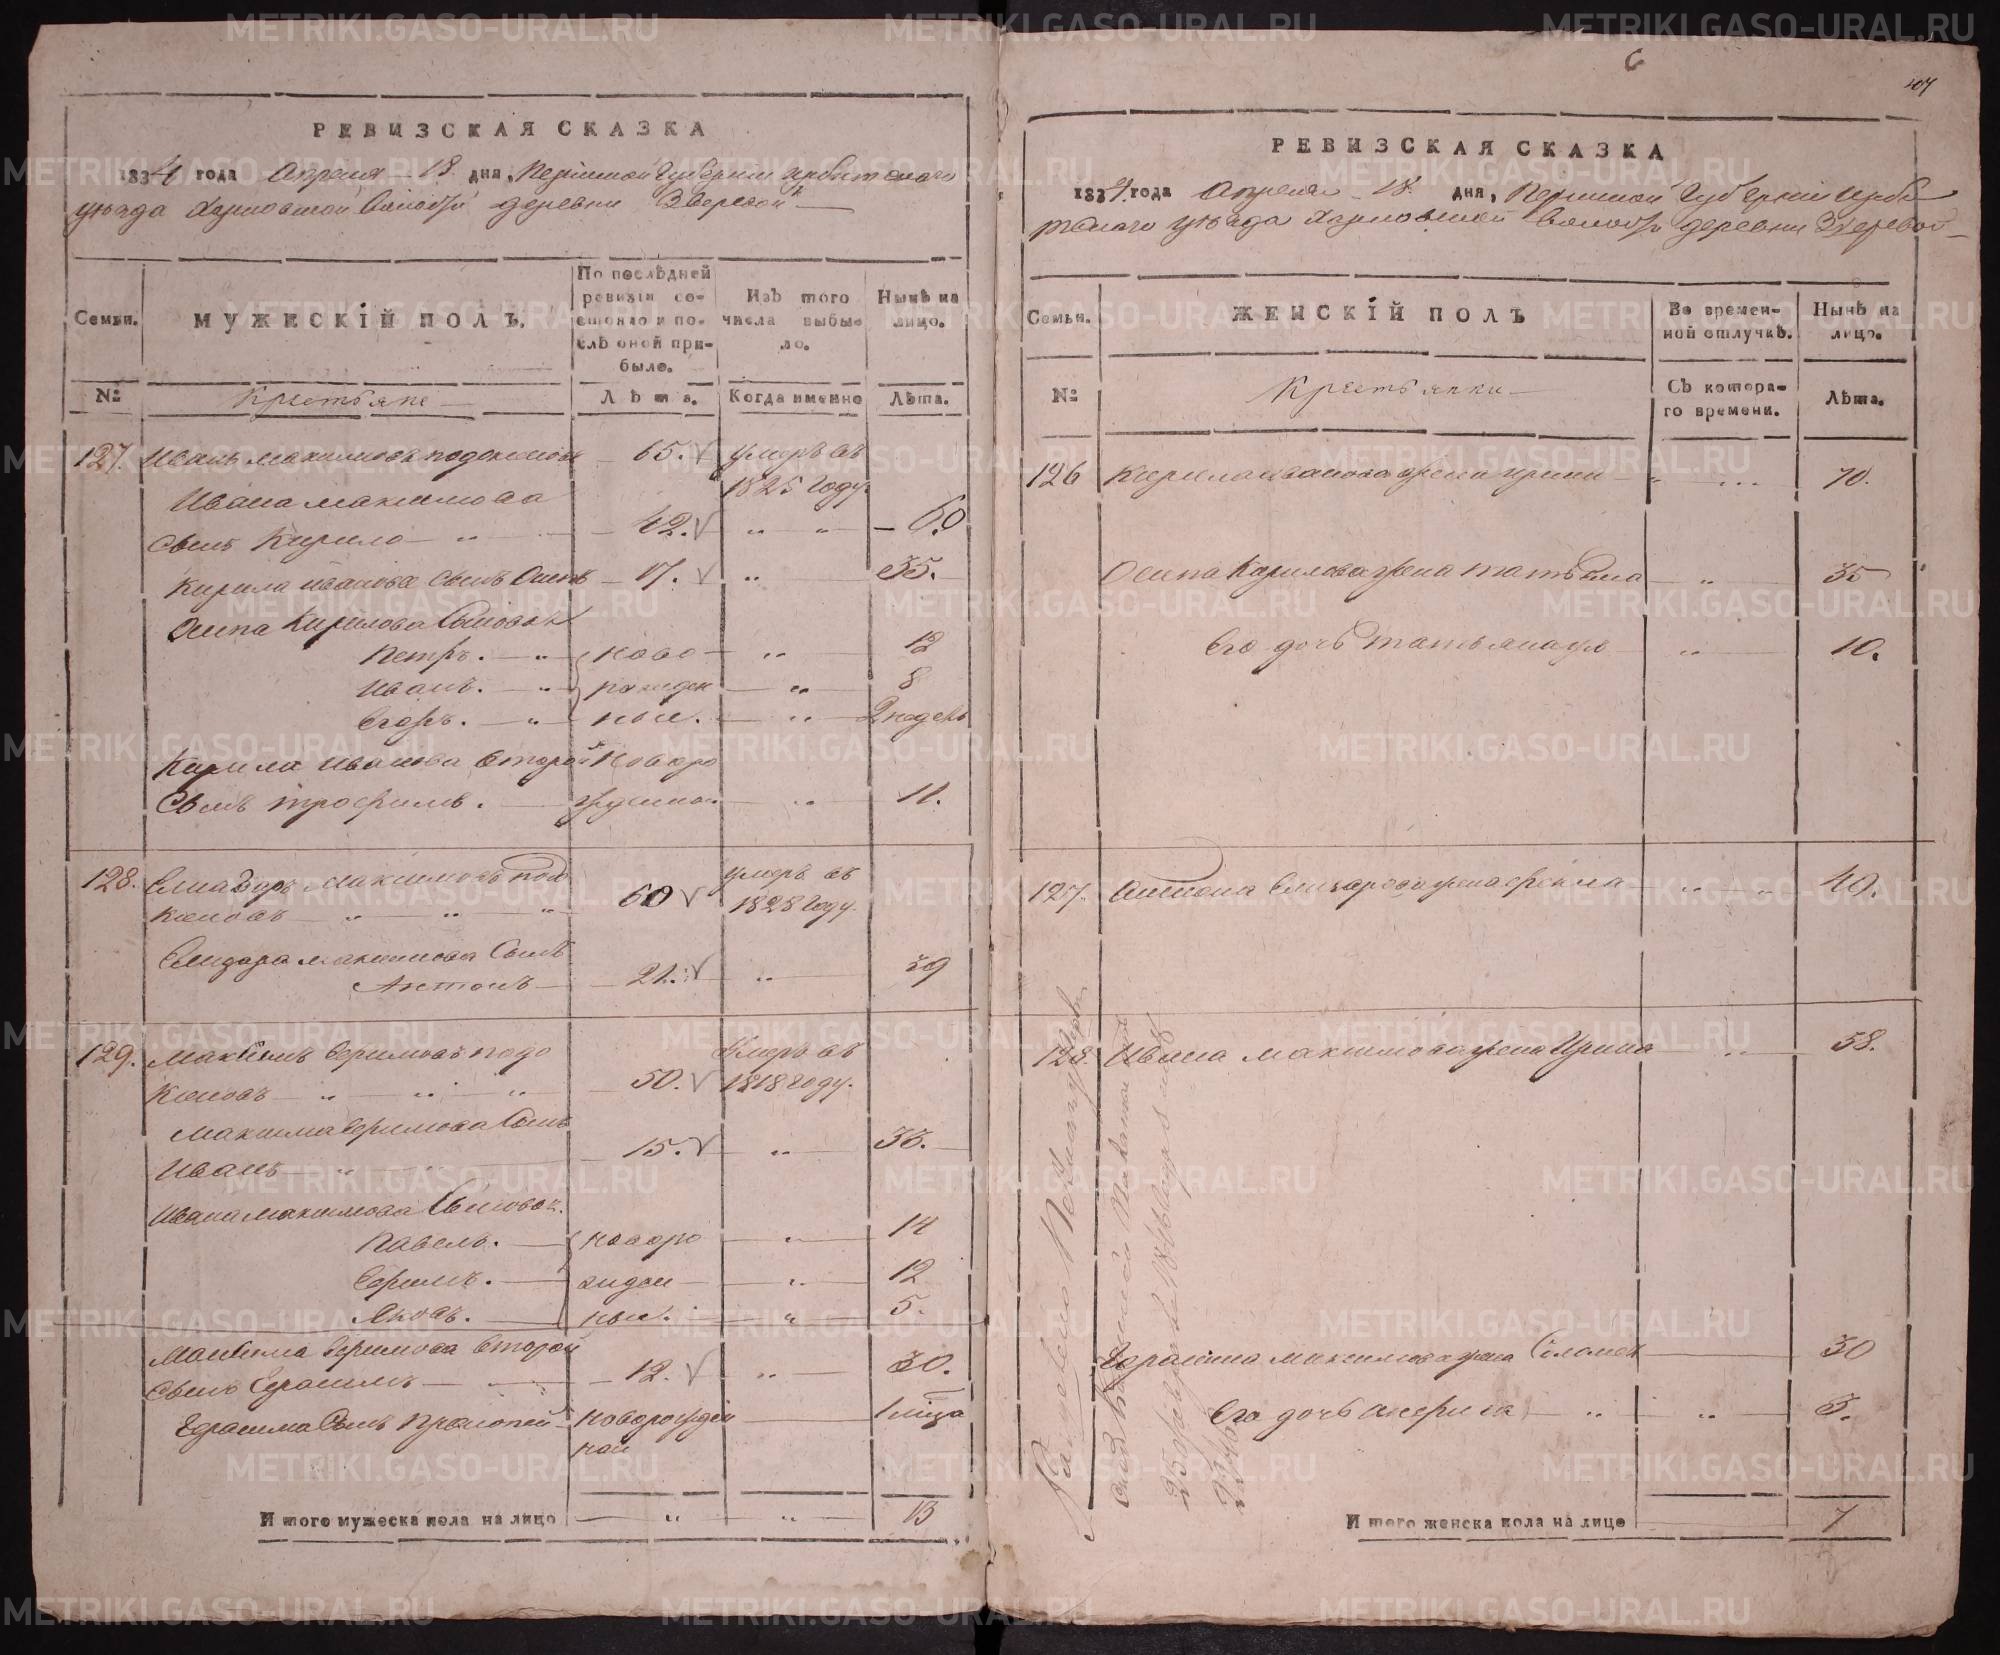 РЕВИЗСКАЯ СКАЗКА
1834 года Апреля 18 дня, Пермской Губернии Ирбитскаго
уѣзда Харловской Волости деревни Зверевой
Семьи.
МУЖЕСКІЙ ПОЛЪ.
По послѣдней ревизіи состояло и послѣ оной прибыло.
Изъ того числа выбыло.
Нынѣ на лицо.
№
Крестьяне
Лѣта.
Когда именно
Лѣта.
127. Иванъ Максимовъ 65. умеръ въ
1825 году
Ивана Максимова
Сынъ Кирило 42. 60
Кирила Иванова Сынъ Осипъ 17. 35.
Осипа Кирилова Сыновья
Петръ. ново 12
Иванъ. рожден 8
Егоръ. ные. 2 недель
Кирила Иванова второй новоро
Сынъ Трофимъ. жденной 11.
128. Елизаръ Максимовъ 60 умеръ въ
1828 году.
Елизара Максимова Сынъ
Антонъ 21. 39
129. Максимъ Ефимовъ 50. Умеръ въ
1818 году.
Максима Ефимова Сынъ
Иванъ 15. 33.
Ивана Максимова Сыновья
Павелъ. новоро 14
Ефимъ. жден 12
Яковъ. ные. 5.
Максима Ефимова второй
Сынъ Герасимъ 12. 30.
Герасима Сынъ новорожден
ной
И того мужеска пола на лицо 13
107
РЕВИЗСКАЯ СКАЗКА
1834 года Апреля 18 дня, Пермской Губернии Ирби
тскаго уѣзда Харловской волости деревни Зверевой
Семьи.
ЖЕНСКІЙ ПОЛЪ
Во временной отлучкѣ.
Нынѣ на лицо.
№
Крестьянки
Съ котораго времени.
Лѣта.
126 Кирила Иванова жена Ирина 70.
Осипа Кирилова жена Татьяна 35
Его дочь Татьяна 10.
127. Антона Елизарова жена Фекла 40.
128. Ивана Максимова жена Ирина 38.
Герасима Максимова жена 30
Его дочь 3.
И того женска пола на лицо 7
METRIKI.GASO-URAL.RU